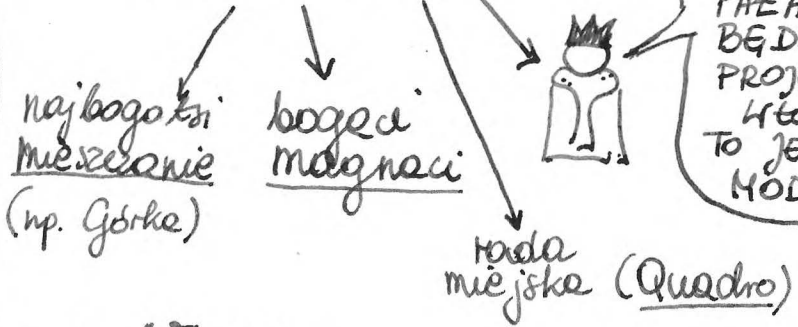 najbogatsi
mieszczanie
(np. Górka)
bogaci
magnaci
rada
miejska (Quadro)
BĘD
PROJ
TO JE
MOD